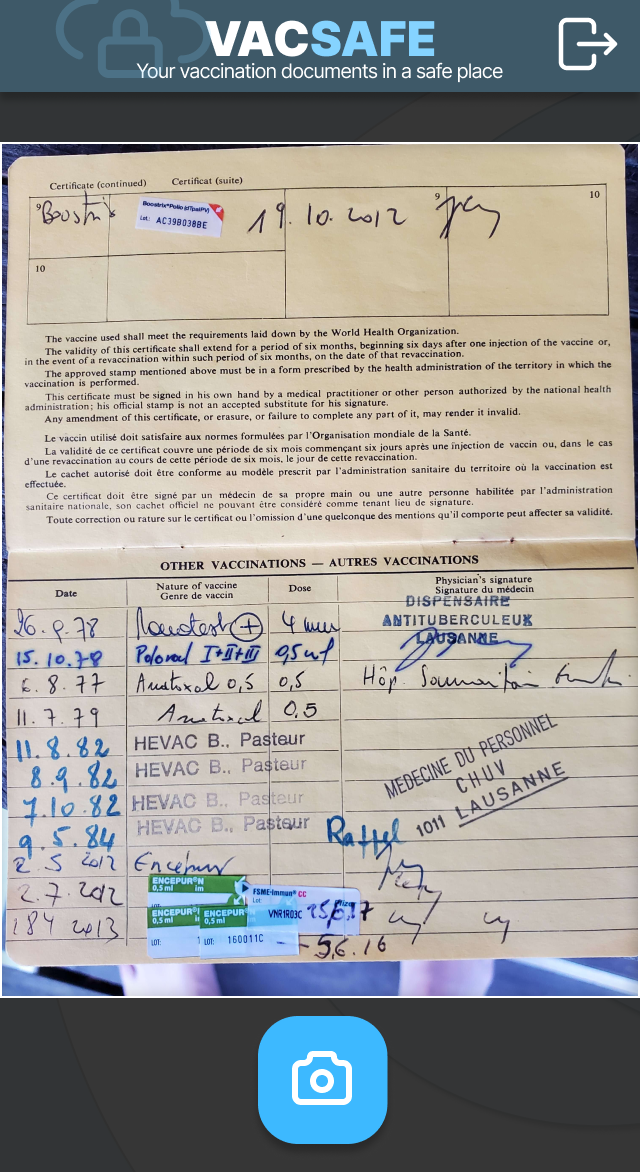 VACSAFE
Your vaccination documents in a safe place
Certificate (continued) Certificat (suite)
9 Boostrix
Boostrix® Polio (dTpaIPV)
Lot: AC39B038BE
19. 10. 2012
9
10
10
The vaccine used shall meet the requirements laid down by the World Health Organization.
The validity of this certificate shall extend for a period of six months, beginning six days after one injection of the vaccine or,
in the event of a revaccination within such period of six months, on the date of that revaccination.
The approved stamp mentioned above must be in a form prescribed by the health administration of the territory in which the
vaccination is performed.
This certificate must be signed in his own hand by a medical practitioner or other person authorized by the national health
administration; his official stamp is not an accepted substitute for his signature.
Any amendment of this certificate, or erasure, or failure to complete any part of it, may render it invalid.
Le vaccin utilisé doit satisfaire aux normes formulées par l'Organisation mondiale de la Santé.
La validité de ce certificat couvre une période de six mois commençant six jours après une injection de vaccin ou, dans le cas
d'une revaccination au cours de cette période de six mois, le jour de cette revaccination.
Le cachet autorisé doit être conforme au modèle prescrit par l'administration sanitaire du territoire où la vaccination est
effectuée.
Ce certificat doit être signé par un médecin de sa propre main ou une autre personne habilitée par l'administration
sanitaire nationale, son cachet officiel ne pouvant être considéré comme tenant lieu de signature.
Toute correction ou rature sur le certificat ou l'omission d'une quelconque des mentions qu'il comporte peut affecter sa validité.
OTHER VACCINATIONS — AUTRES VACCINATIONS
Date
Nature of vaccine
Genre de vaccin
Dose
Physician's signature
Signature du médecin
DISPENSAIRE
ANTITUBERCULEUX
LAUSANNE
26. 9. 78 + 4 mm
15. 10. 78 I+II+III
6. 8. 77 Anatoxal 0,5 0,5 Hôp.
11. 7. 79 Anatoxal 0.5
11. 8. 82 HEVAC B., Pasteur
8. 9. 82 HEVAC B., Pasteur
7. 10. 82 HEVAC B., Pasteur
9. 5. 84 HEVAC B., Pasteur Rappel
MEDECINE DU PERSONNEL
CHUV
1011 LAUSANNE
2. 5 2012 Encepur
2. 7. 2012
18 4 2013
ENCEPUR® N
0,5 ml im
FSME-Immun® CC
Lot:
VNR1R03C
ENCEPUR
0,5 ml
LOT:
ENCEPUR
0,5 ml
LOT: 160011C
5.6.16